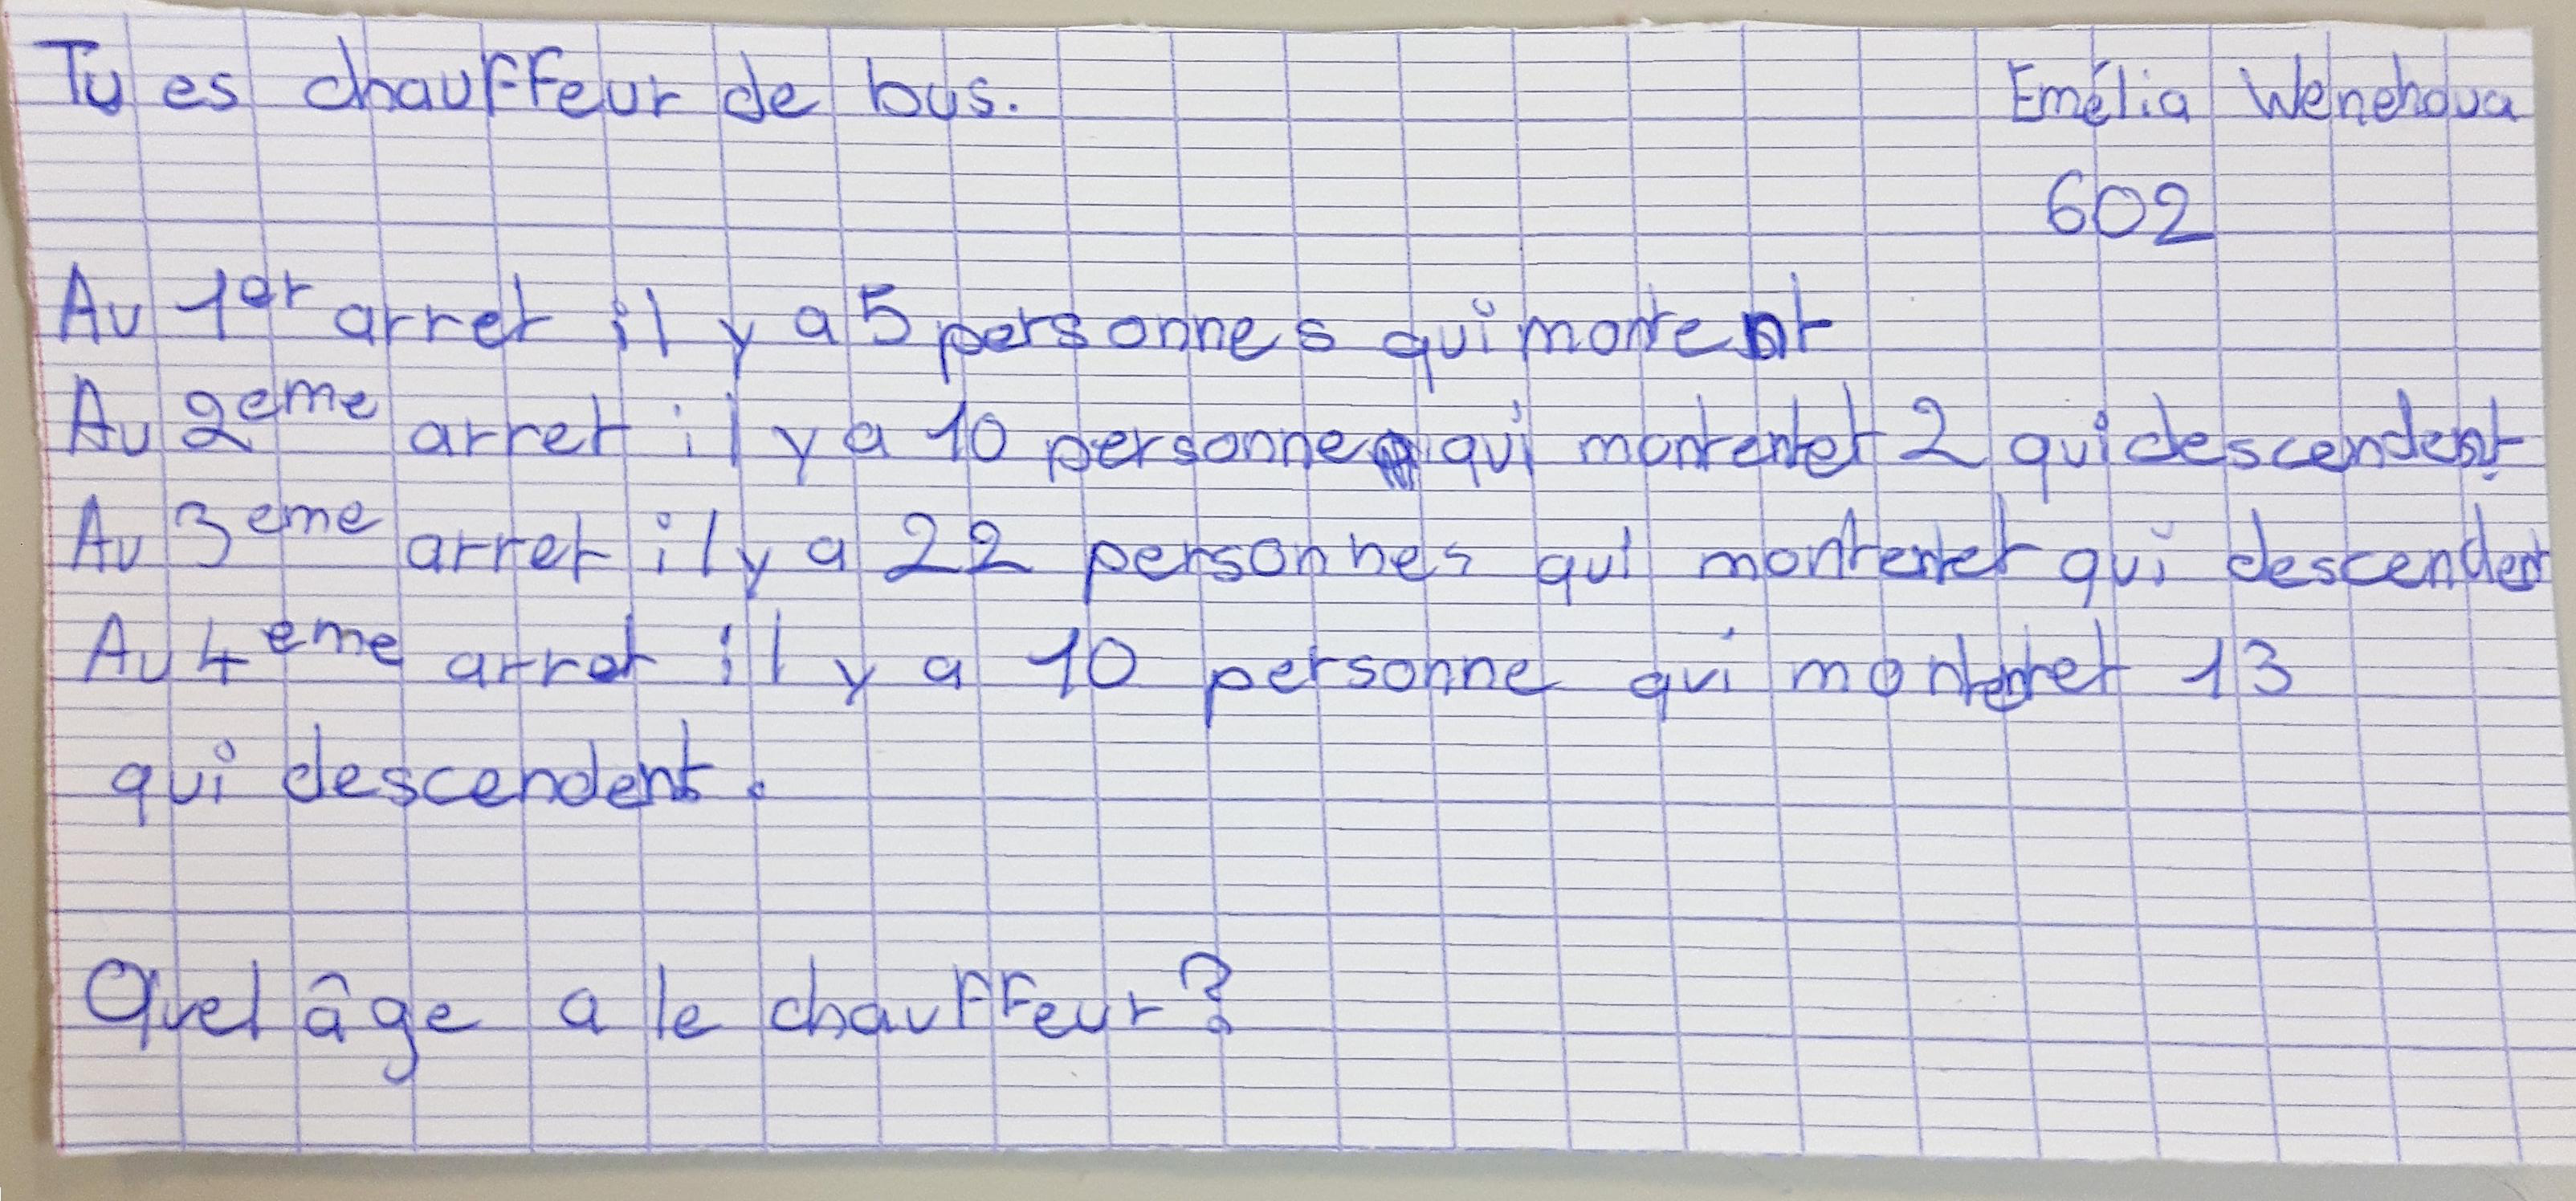 Tu es chauffeur de bus.
Emélia Wenehoua
602
Au 1er arret il y a 5 personnes qui montent
Au 2eme arret il y a 10 personne qui montent et 2 qui descendent
Au 3eme arret il y a 22 personnes qui montent et qui descendent
Au 4eme arret il y a 10 personne qui montent et 13
qui descendent.
Quel âge a le chauffeur?